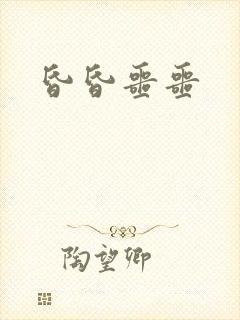 昏昏噩噩
陶望卿